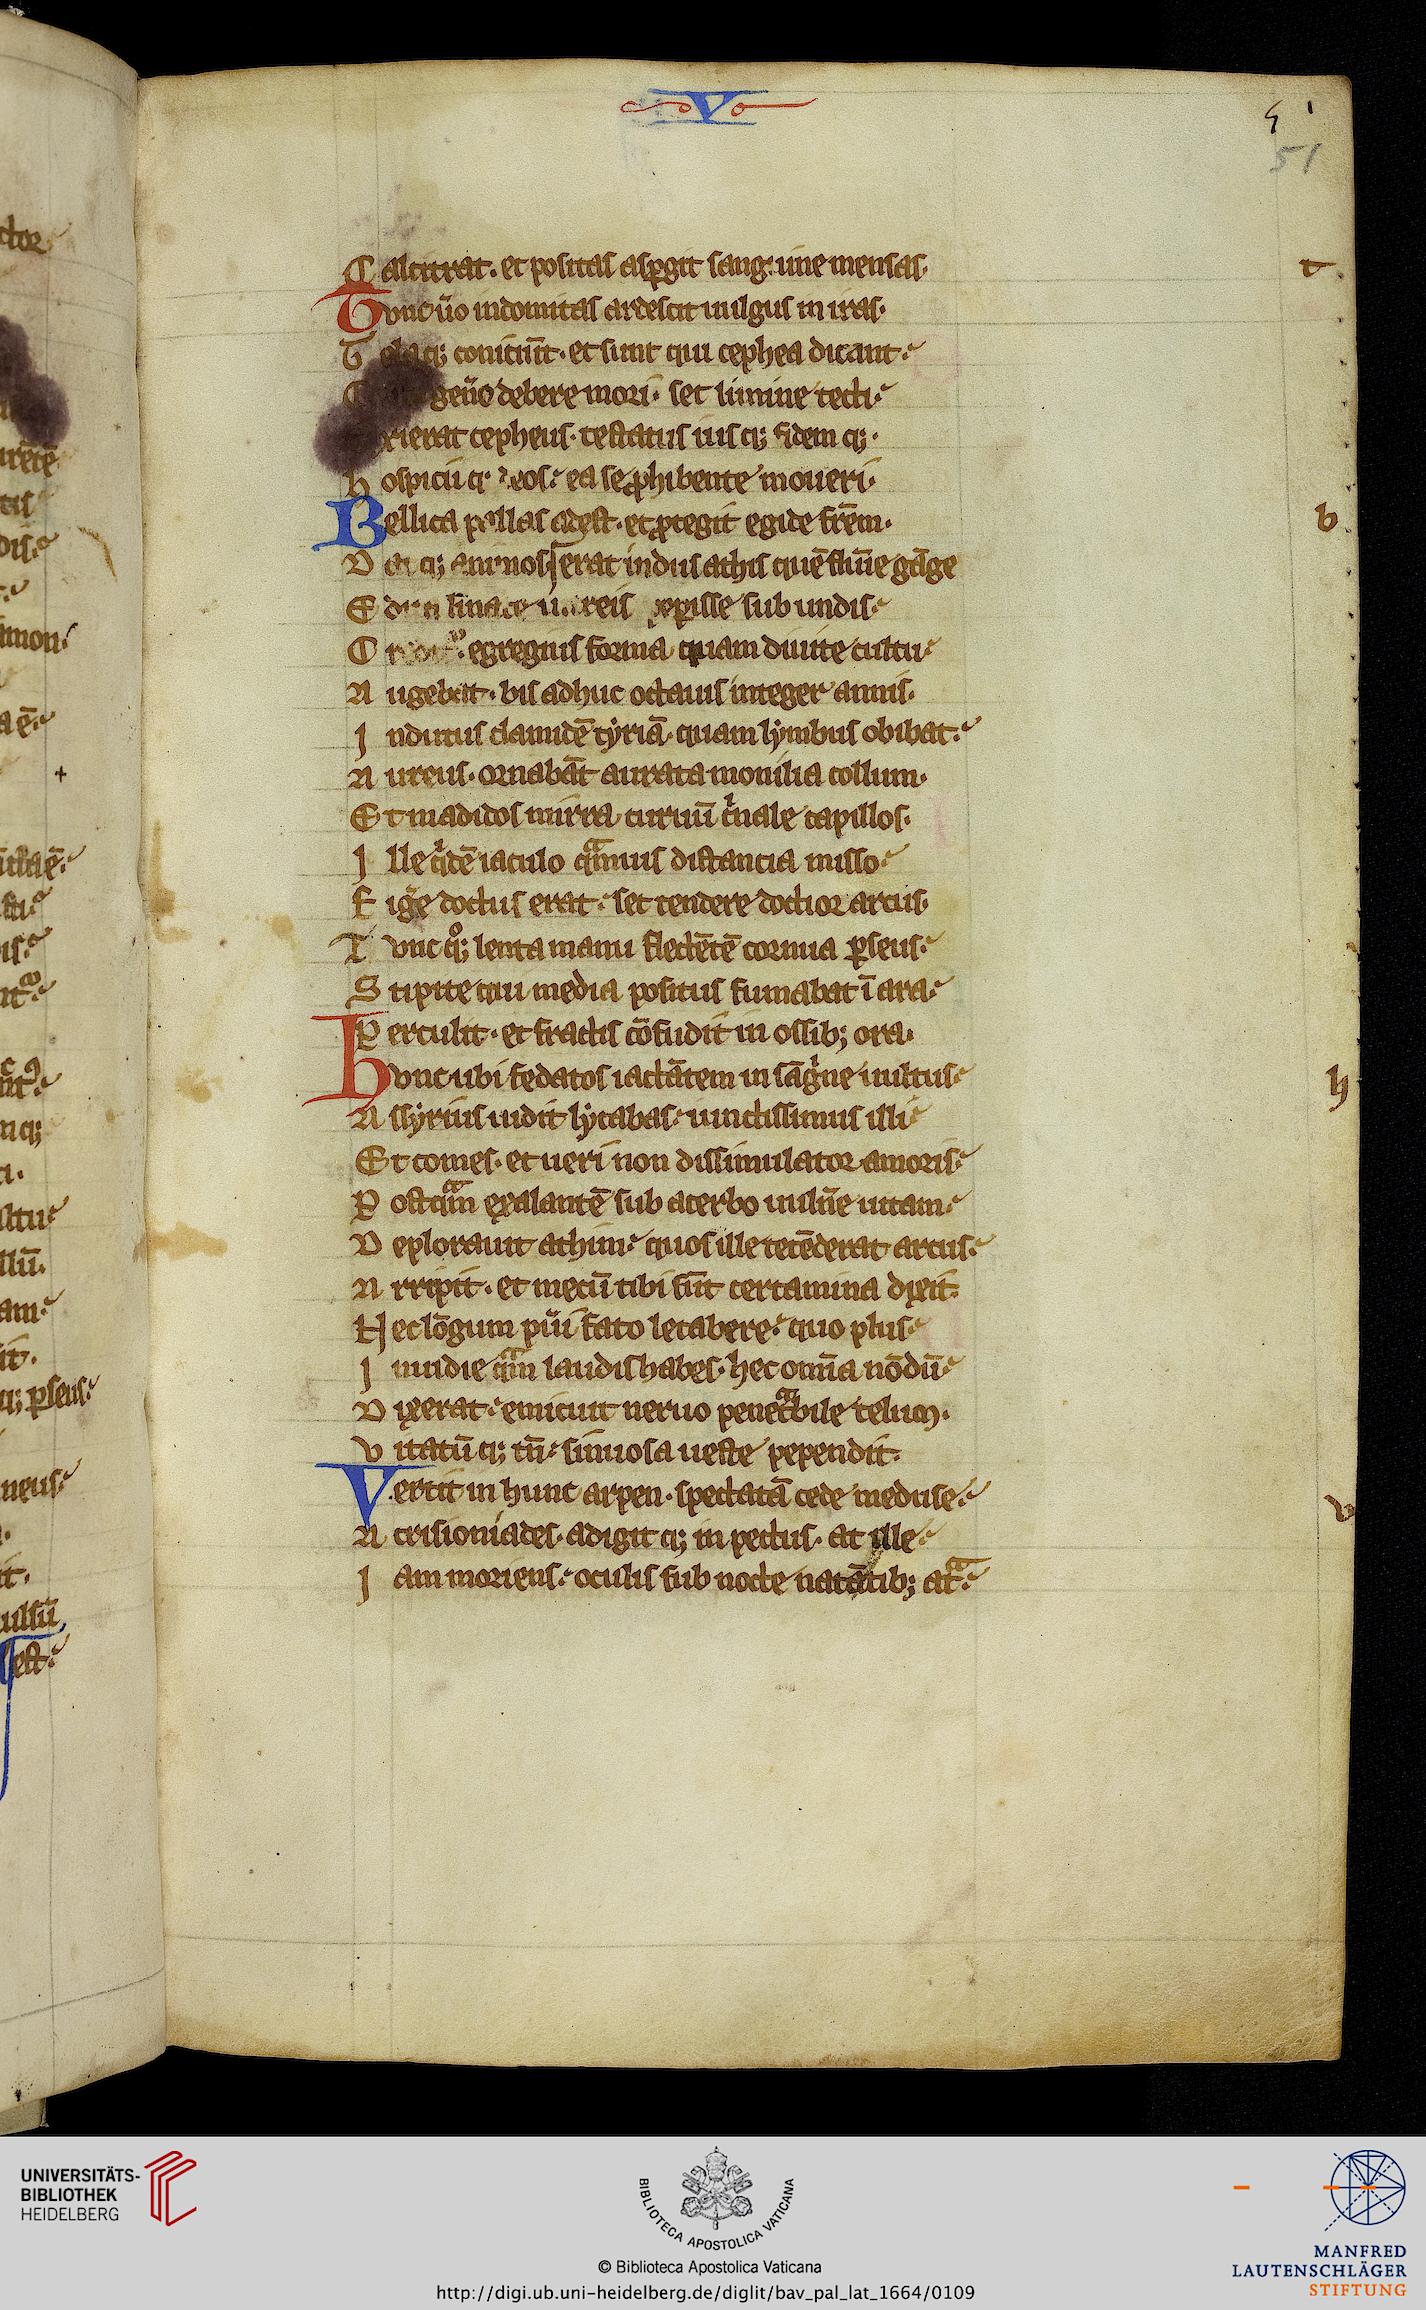 V
51
51
Calcitrat. et positas asꝑgit sang:uine mensas.
Tunc u̾o indomitas ardescit uulgus in iras.
T elaqꝫ coniciūt. et sunt qui cephea dicant.
gen̾o debere mori. set limine tecti.
xierat cepheus. testatus iusqꝫ fidemqꝫ.
hospicii qꝫ deos. ea se ꝓhibente moueri.
Bellica pallas adest. et ꝓtegit egide fr̄em.
D atqꝫ animos erat indus athis quē flumīe gāge
E dita peperisse sub undis.
C egregius forma quam diuite cultu.
A ugebat. bis adhuc octauis integer annis.
I ndutus clamidē tyriā. quam lymbus obibat.
A ureus. ornabāt aurata monilia collum.
Et madidos mirra curuū cͥnale capillos.
I lle qͥdē iaculo qͣmuis distancia misso.
F iḡe doctus erat. set tendere doctior arcus.
T unc qͦqꝫ lenta manu flectētē cornua ꝑseus.
S tipite qui media positus fumabat ī ara.
P erculit. et fractis cōfudit in ossibꝫ ora.
hunc ubi fedatos iactātem in sāgͥne uultus.
A ssyrius uidit lycabas. iunctissimus illi.
Et comes. et ueri non dissimulator amoris.
P ostqͣm exalantē sub acerbo uuln̄e uitam.
D eplorauit athim. quos ille tetēderat arcus.
A rripit. et mecū tibi sūt certamina dixit.
Nec lōgum pu̾i fato letabere. quo plus.
I nuidie qͣm laudis habes. hec omīa nōdū.
D ixerat. emicuit neruo penetͣbile telum.
V itatūqꝫ tn̄. sinuosa ueste pependit.
Vertit in hunc arpen. spectatā cede meduse.
A crisioniades. adigit qꝫ in pectus. at ille.
I am moriens. oculis sub nocte natātibꝫ atͣ.
t
b
h
v
UNIVERSITÄTS-
BIBLIOTHEK
HEIDELBERG
BIBLIOTECA APOSTOLICA VATICANA
© Biblioteca Apostolica Vaticana
http://digi.ub.uni-heidelberg.de/diglit/bav_pal_lat_1664/0109
MANFRED
LAUTENSCHLÄGER
STIFTUNG